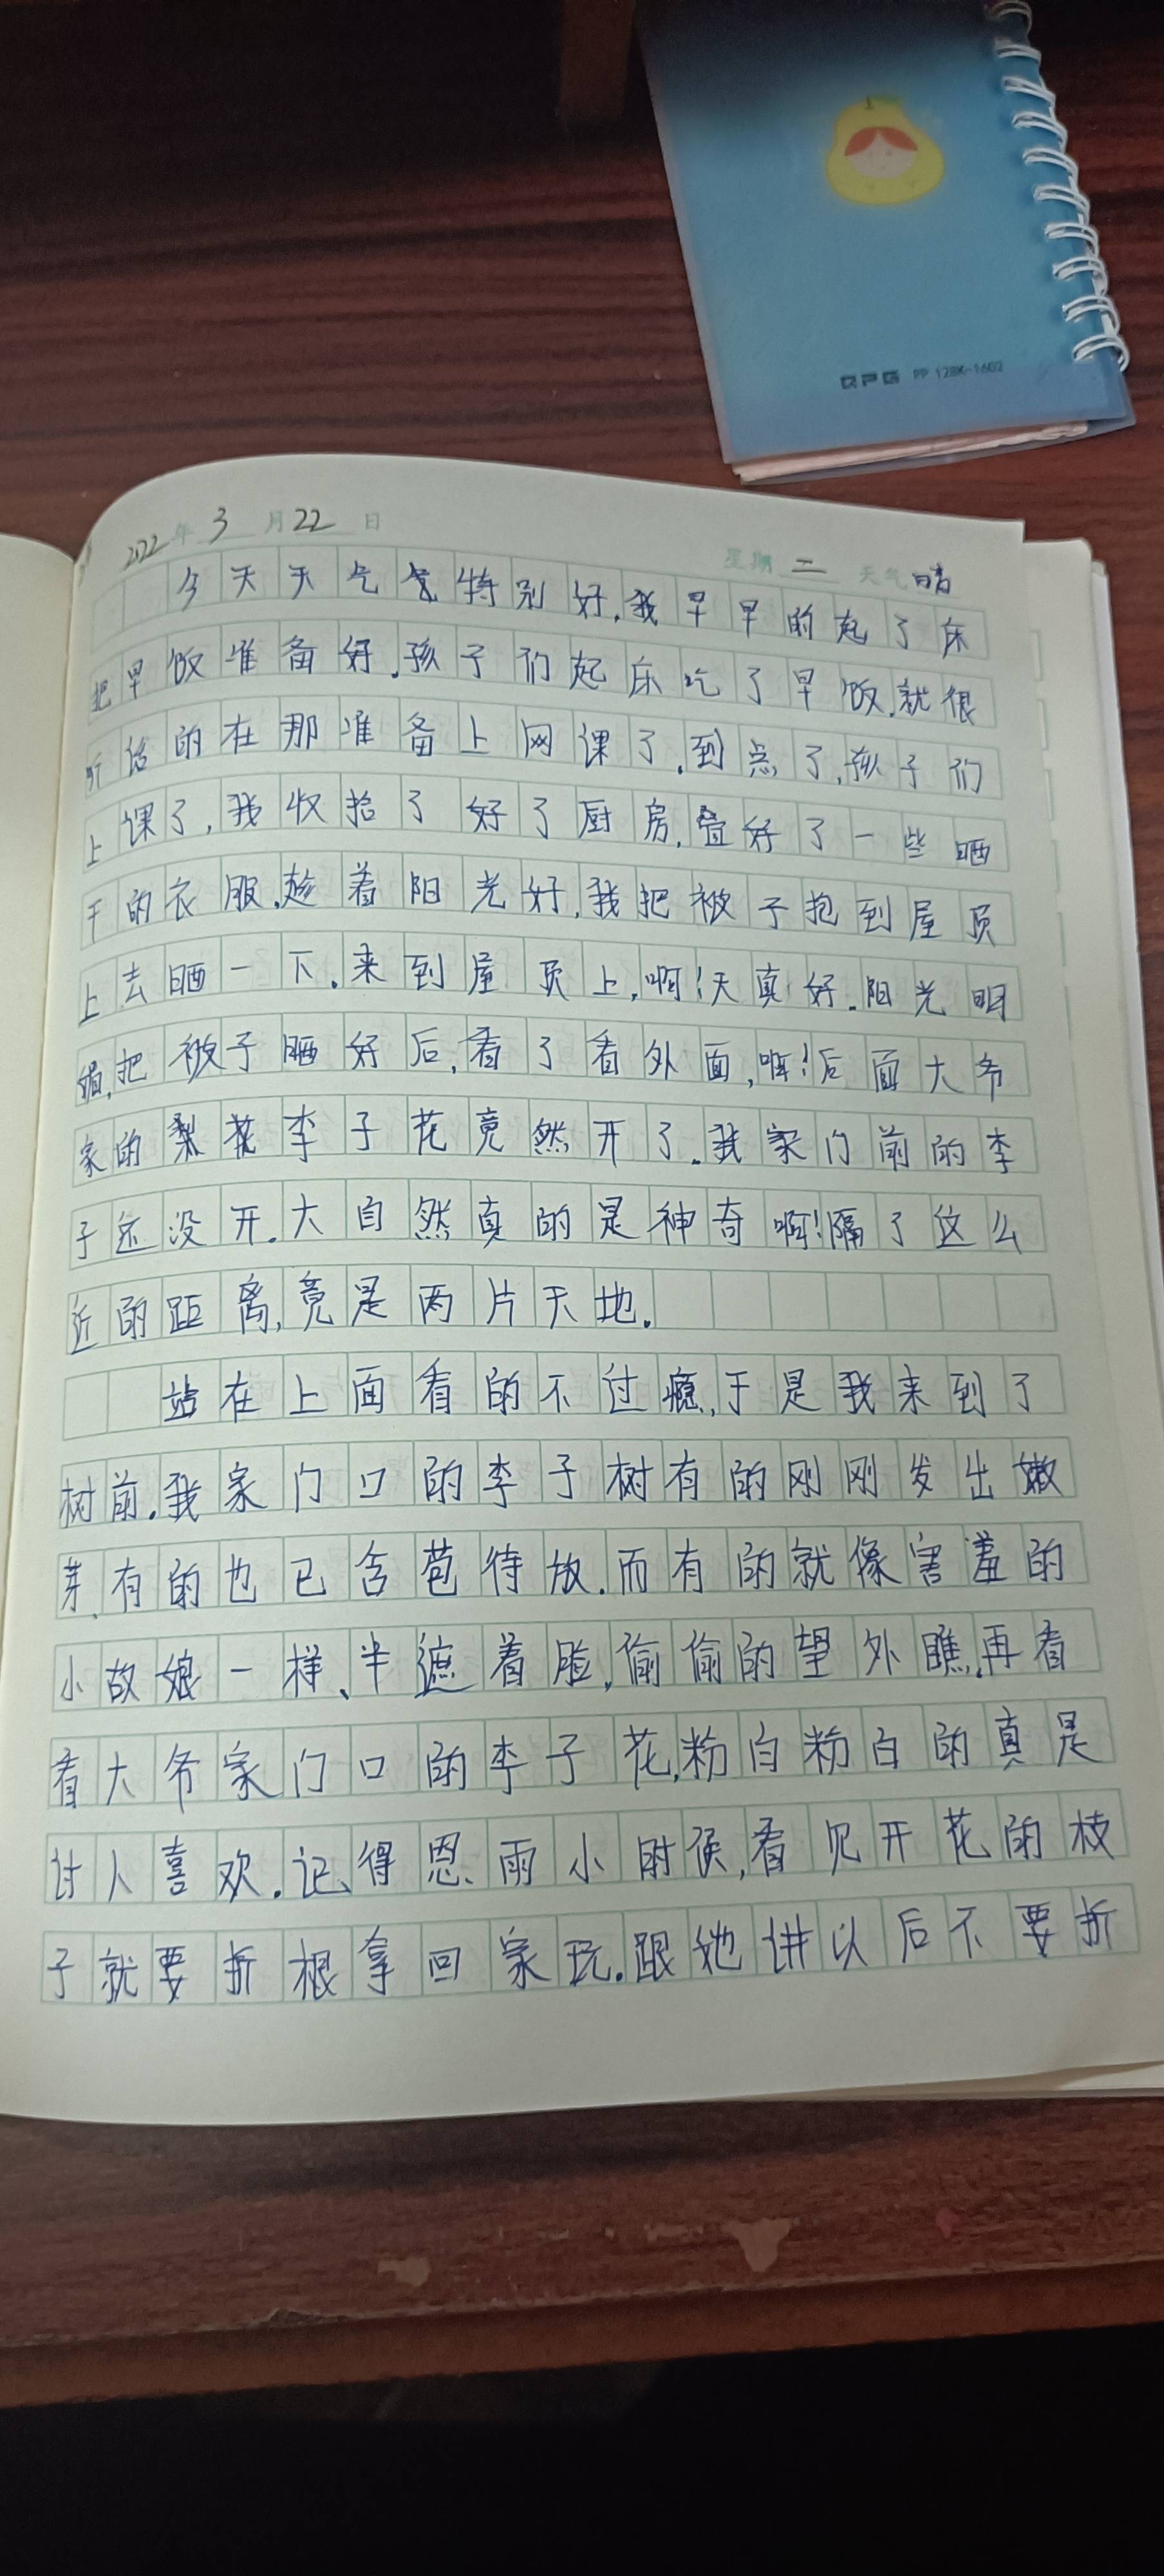 QPG PP 128K-1602
2022年3月22日 星期二 天气晴
今天天气气特别好.我早早的起了床
把早饭准备好.孩子们起床吃了早饭.就很
听话的在那准备上网课了.到点了,孩子们
上课了,我收拾了好了厨房,叠好了一些晒
干的衣服.趁着阳光好,我把被子抱到屋顶
上去晒一下.来到屋顶上,啊!天真好.阳光明
媚,把被子晒好后,看了看外面,啊!后面大爷
家的梨花李子花竟然开了.我家门前的李
子还没开.大自然真的是神奇啊!隔了这么
近的距离,竟是两片天地.
站在上面看的不过瘾,于是我来到了
树前.我家门口的李子树有的刚刚发出嫩
芽、有的也已含苞待放.而有的就像害羞的
小故娘一样、半遮着脸,偷偷的望外瞧.再看
看大爷家门口的李子花,粉白粉白的真是
讨人喜欢.记得恩雨小时侯,看见开花的枝
子就要折根拿回家玩.跟她讲以后不要折